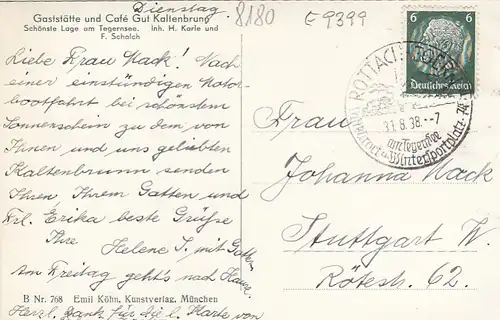 Gaststätte und Café Gut Kaltenbrunn
Schönste Lage am Tegernsee. Inh. H. Karle und
F. Scholch
Dienstag.
8180
E 9399
Liebe Frau Mack! Nach
einer einstündigen Motor-
bootfahrt bei schönstem
Sonnenschein zu dem von
Ihnen und uns geliebten
Kaltenbrunn senden
Ihnen, Ihrem Gatten und
Frl. Erika beste Grüße
Ihre
Helene J. mit Gatten
Am Freitag geht's nach Hause.
B Nr. 768 Emil Köhn, Kunstverlag, München
Herzl. Dank für die l. Karte von
6 6
Deutsches Reich
ROTTACH-EGERN
31.8.38.--7
am Tegernsee
Wintersportplatz
Frau
Johanna Mack
Stuttgart W.
Rötestr. 62.